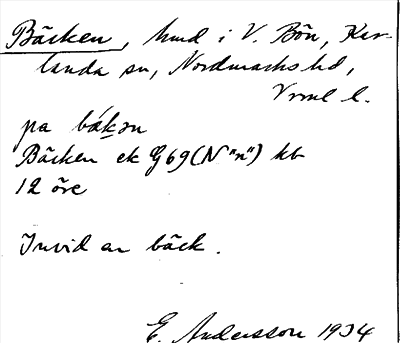 Bäcken, hmd i V. Bön, Kar-
landa sn, Nordmarks hd,
Vrml l.
pa bäkən
Bäcken ek G69 (N "n") kb
12 öre
Invid en bäck.
E. Andersson 1934